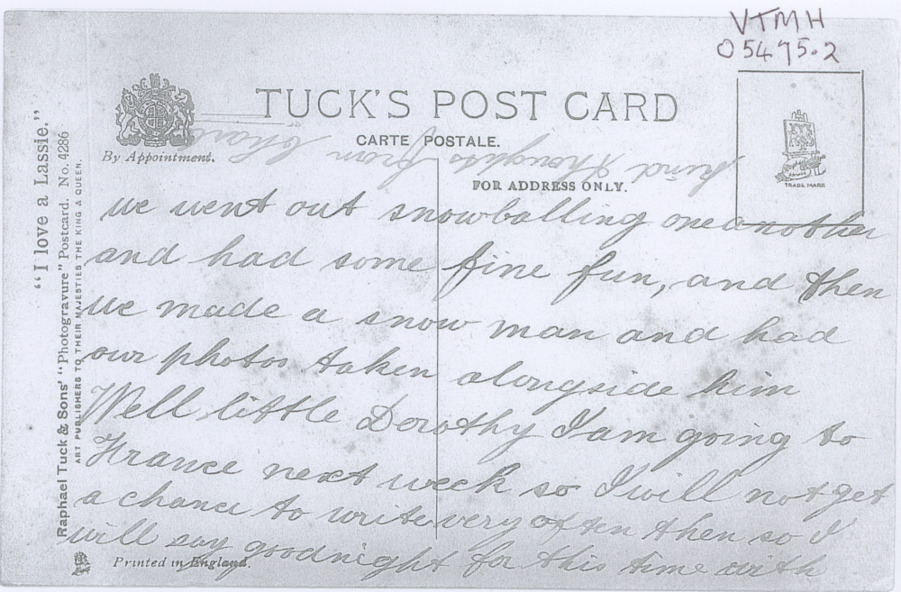 VTMH
05475.2
TUCK'S POST CARD
CARTE POSTALE.
By Appointment.
FOR ADDRESS ONLY.
TRADE MARK
"I love a Lassie."
Raphael Tuck & Sons' "Photogravure" Postcard. No. 4286
ART PUBLISHERS TO THEIR MAJESTIES THE KING & QUEEN.
kind thoughts from Charl
we went out snowballing one another
and had some fine fun, and then
we made a snow man and had
our photos taken alongside him
Well little Dorothy I am going to
France next week so I will not get
a chance to write very often then so I
will say goodnight for this time with
Printed in England.